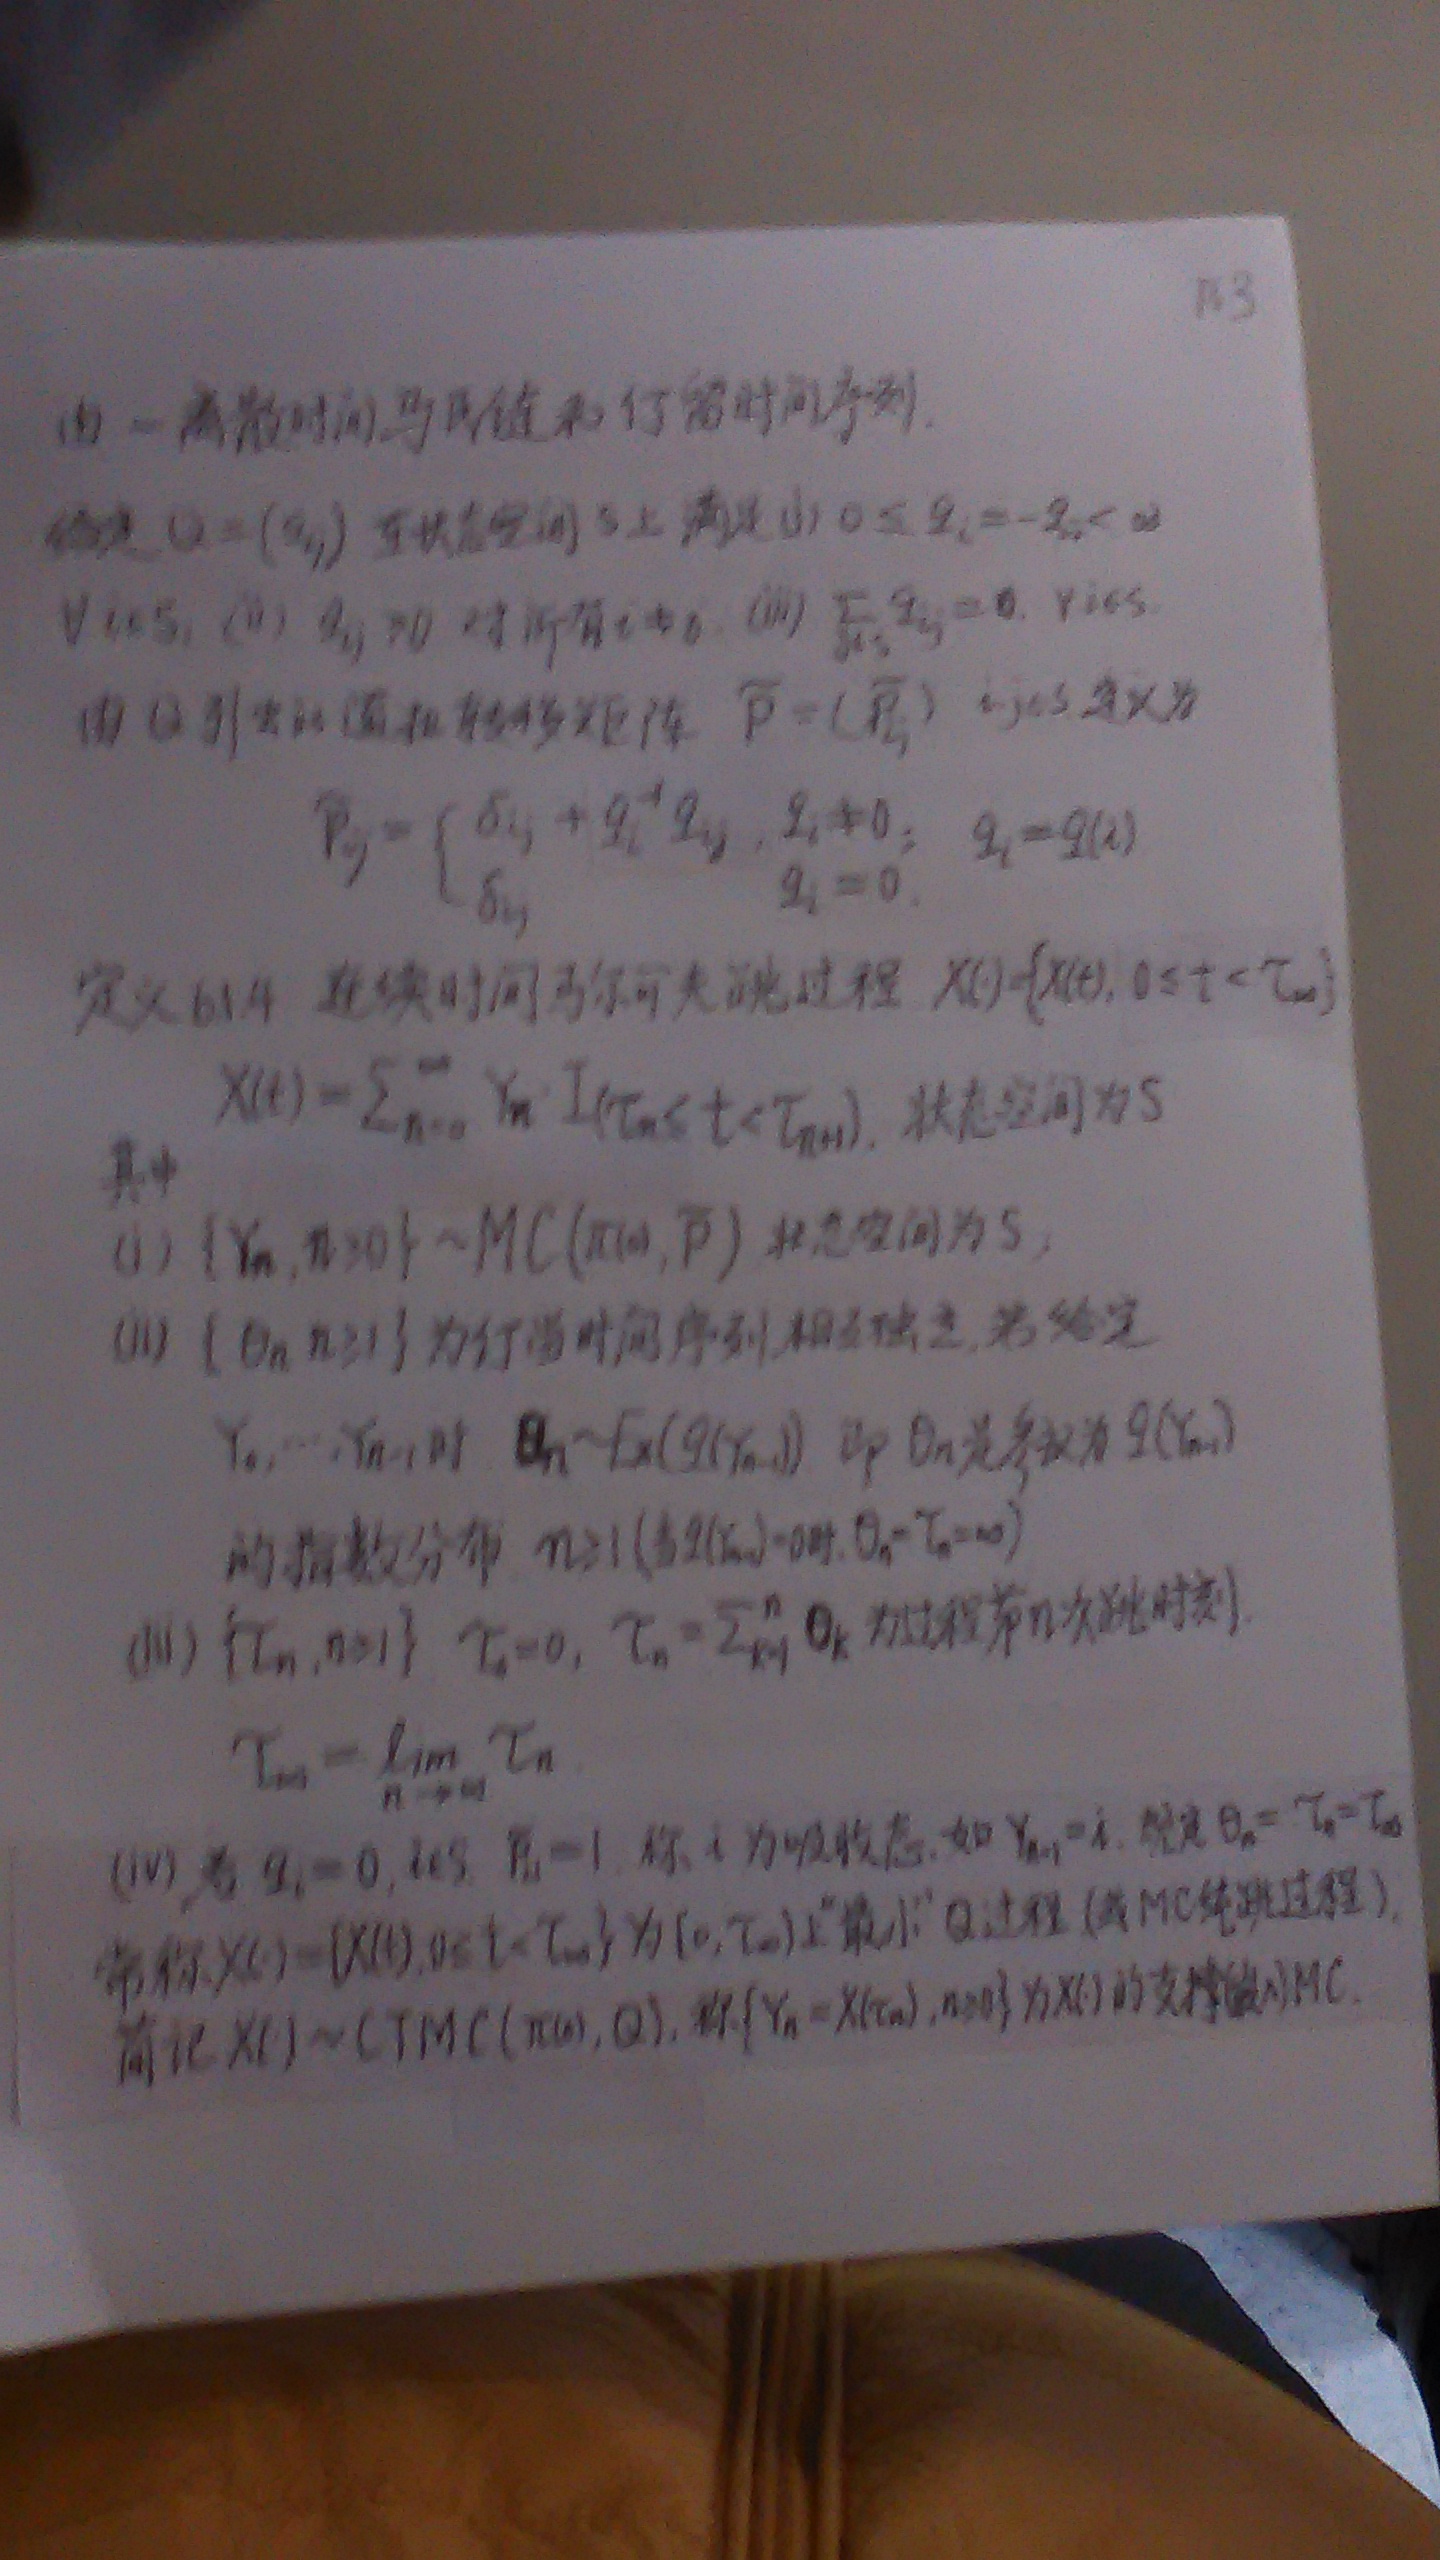 由一离散时间马氏链和行留时间序列.
假定 Q=(qij) 在状态空间S上满足(i) 0≤qi=-qii<∞
∀i∈S, (ii) qij≥0 对所有i≠j. (iii) Σj∈S qij=0. ∀i∈S.
由Q引出的 转移矩阵 P̄=(P̄ij) i,j∈S定义为
P̄ij={ δij+qi⁻¹qij, qi≠0; qi=q(i)
δij qi=0.
定义6.1.4 连续时间马尔可夫跳过程 X(·)={X(t), 0≤t<τ∞}
X(t)=Σn=0^∞ Yn·I(τn≤t<τn+1), 状态空间为S
其中
(i) {Yn, n≥0}~MC(π(0), P̄) 状态空间为S,
(ii) {θn n≥1}为行留时间序列,相互独立,若给定
Y0,…,Yn-1时 θn~Ex(q(Yn-1)) 即θn是参数为q(Yn-1)
的指数分布 n≥1(当q(Yn-1)=0时,θn=τn=∞)
(iii) {τn, n≥1} τ0=0, τn=Σk=1^n θk 为过程第n次跳时刻.
τ∞=lim n→∞ τn.
(iv) 若qi=0, i∈S. P̄ii=1 称i为吸收态.如Yn-1=i. 规定θn=τn=τ∞
常称X(·)={X(t),0≤t<τ∞}为[0,τ∞)上"最小"Q过程(或MC纯跳过程).
简记X(·)~CTMC(π(0),Q). 称{Yn=X(τn),n≥0}为X(·)的支撑(嵌入)MC.